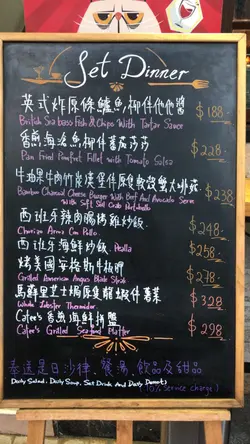 Set Dinner
英式炸原條鱸魚柳伴他他醬
British Seabass Fish & Chips With Tartar Sauce
$188.
香煎海鯧魚柳伴蕃茄莎莎
Pan Fried Pomfret Fillet with Tomato Salsa
$228.
牛油果牛肉竹炭漢堡伴原隻軟殼蟹大啡菇
Bamboo Charcoal Cheese Burger With Beef And Avocado Serve
With Soft Shell Crab Portobello
$238
西班牙辣肉腸烤雞炒飯
Chorizo Arroz Con Pollo
$248.
西班牙海鮮炒飯 Paella
$258.
烤美國安格斯牛板腱
Grilled American Angus Blade Steak
$278.
馬蘇里芝士焗原隻龍蝦伴薯菜
Whole Lobster Thermidor
$328
Catee's 香煎海鮮拼盤
Catee's Grilled Seafood Platter
$298.
奉送是日沙律，餐湯，飲品及甜品
Daily Salad, Daily Soup, Set Drink And Daily Dessert
(10% Service charge)